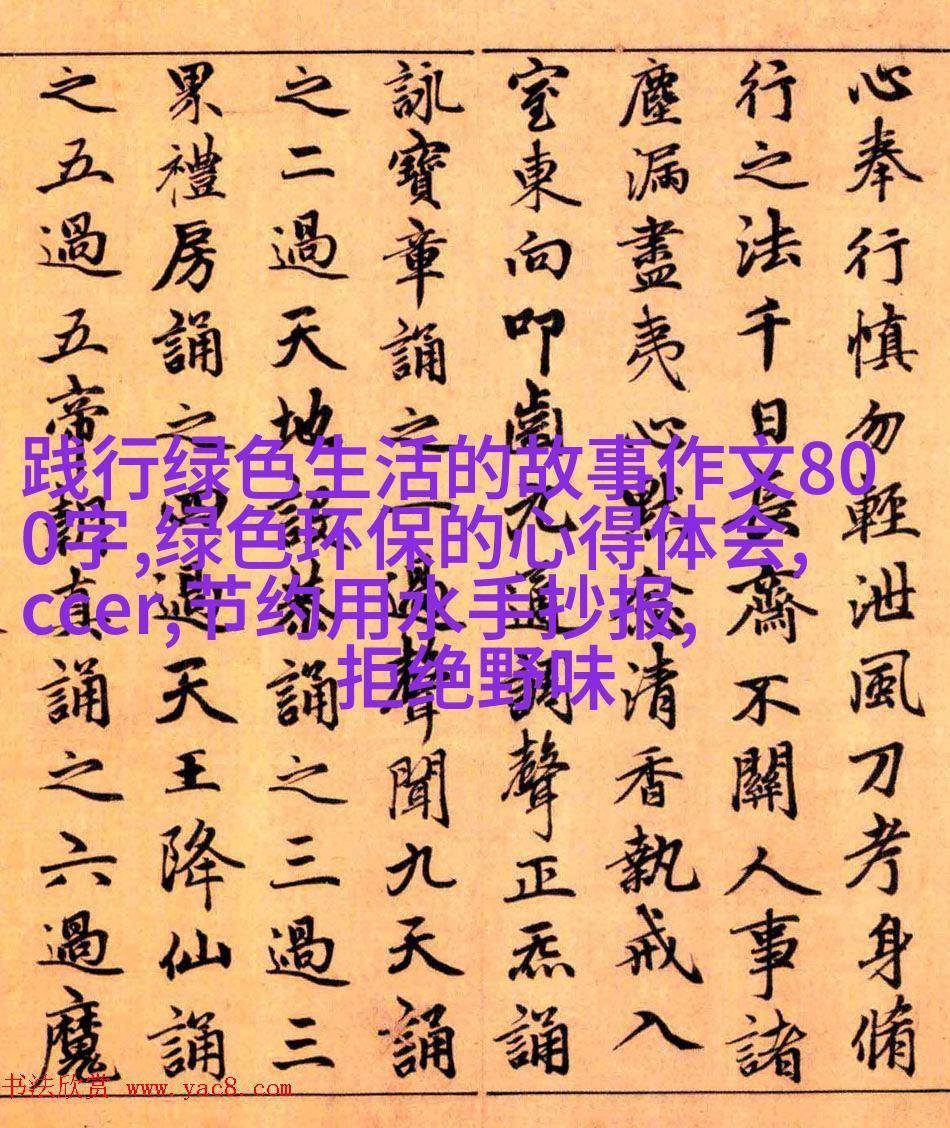 心奉行慎勿輕泄風刀考身脩
行之法千日長齋不關人事諸
塵漏盡夷心默念清香執戒入
室東向叩齒九通調聲正炁誦
詠寶章誦之一過聲聞九天誦
之二過天地設恭誦之三過三
累禮房誦之四過天王降仙誦
之五過五帝朝真誦之六過魔
践行绿色生活的故事作文80
0字,绿色环保的心得体会,
ccer,节约用水手抄报,
拒绝野味
书法欣赏 www.yac8.com